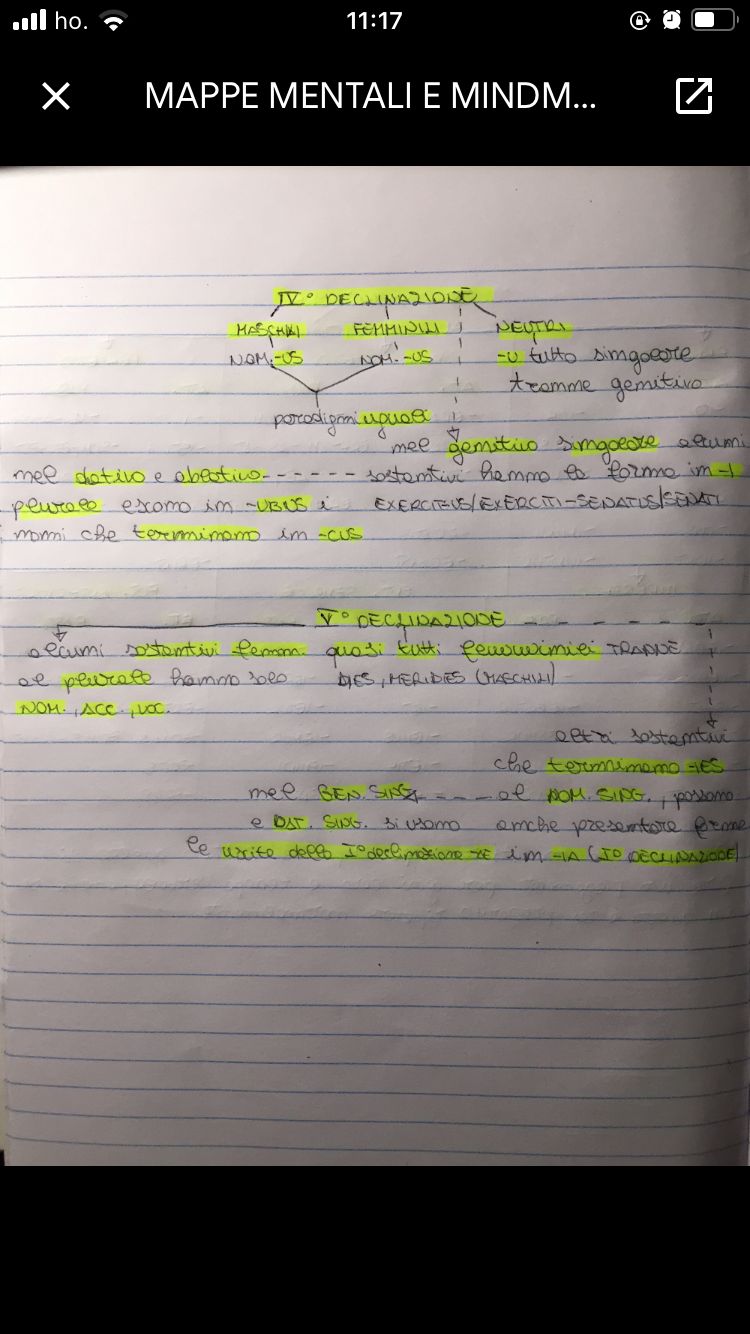 ho. 11:17
MAPPE MENTALI E MINDM...
IV° DECLINAZIONE
MASCHILI FEMMINILI NEUTRI
NOM. -US NOM. -US -U tutto singolare
tranne genitivo
paradigmi uguali
nel genitivo singolare alcuni
nel dativo e ablativo sostantivi hanno la forma in -I
plurale escono in -UBUS i EXERCITUS/EXERCITI-SENATUS/SENATI
nomi che terminano in -CUS
V° DECLINAZIONE
alcuni sostantivi femm. quasi tutti femminili TRANNE
al plurale hanno solo DIES, MERIDIES (MASCHILI)
NOM., ACC., VOC.
altri sostantivi
che terminano -IES
nel GEN. SING. al NOM. SING., possono
e DAT. SING. si usano anche presentare forme
le uscite della I° declinazione -AE in -IA (I° DECLINAZIONE)